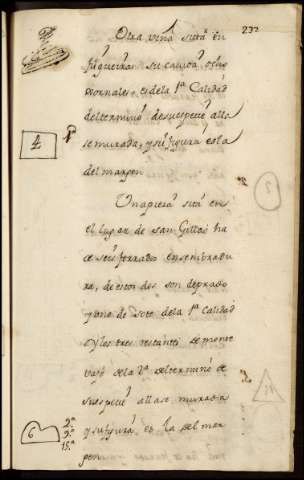 232
Otra viña sita en
figueiras su cavida ocho
Jornales, es de la 1ª Calidad
del termino, de su especie alla
se murada, y su figura es la
4
del marxen
Una pieza sita en
2
el lugar de san Gil
ze seis ferrados en sembradu
ra, de estos dos son de prado
y uno de soto de la 1ª Calidad
y los tres restantes de monte
vajo de la 2ª del termino de
su especie allase murada
y su figura es la del mar
6
2ª
3ª
15ª
xen